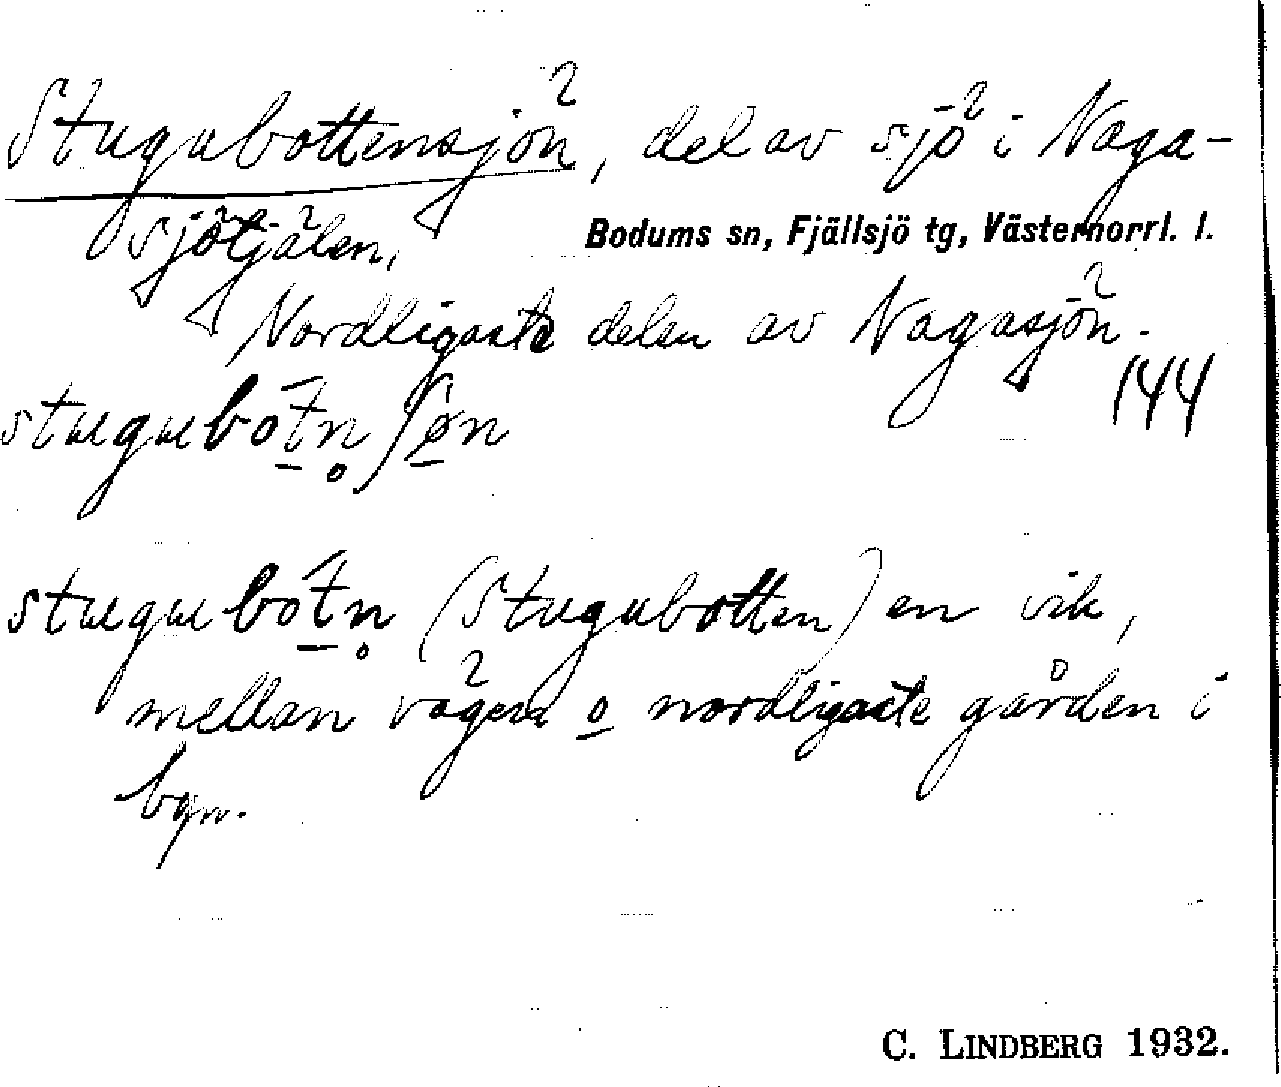 Stugubottensjön, del av sjö i Naga-
sjötjälen,
Bodums sn, Fjällsjö tg, Västernorrl. l.
Nordligaste delen av Nagasjön.
144
stugubotn̥ ʃøn
stugubotn̥ (Stugubotten) en vik,
mellan vägen o nordligaste gården i
byn.
C. LINDBERG 1932.